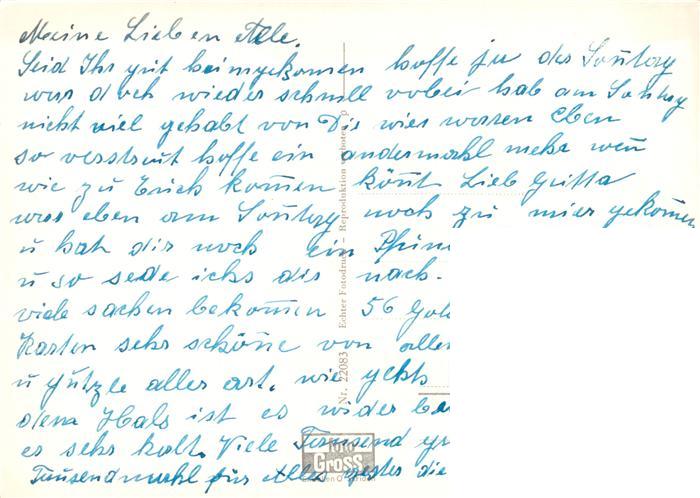 Meine Lieben Alle,
Seid Ihr gut heimgekomen hoffe ja der Sontag
war doch wieder schnell vobei hab am Sontag
nicht viel gehabt von Die wier waren Eben
so verstreut hoffe ein andermahl mehr wen
wie zu Euch komen könt Lieb Gritta
war eben am Sontag noch zu mier gekomen
u hat dir noch ein
u so sede ichs dir nach.
viele sachen bekomen 56
Karten sehr schöne von alle
u alles art. wie gehts
dem Hals ist es wider be
es sehr kalt. Viele Tausend gr
Tausendmahl für Alles die
Nr. 22083 Echter Fotodruck – Reproduktion verboten
Foto
GROSS